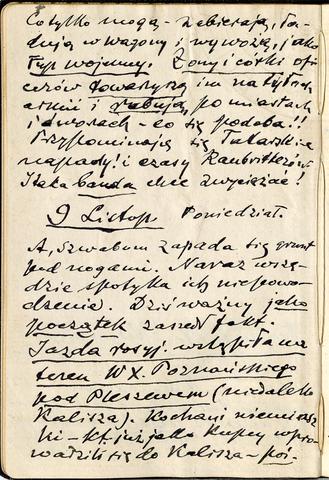 Co tylko mogą – zabierają, ła-
dują w wagony i wywożą, jako
łup wojenny. Żony i córki ofi-
cerów towarzyszą im na tyłach
armii i rabują, po miastach
i dworach – co się podoba!!
Przypominają się Tatarskie
napady! i czasy Raubritterów
I taka banda chce zwyciężać!
9 Listop Poniedział.
A, Szwabom zapada się grunt
pod nogami. Naraz wszę-
dzie spotyka ich niepowo-
dzenie. Dziś ważny jako
początek zaszedł fakt.
Jazda rosyj. wstąpiła na
teren W X. Poznańskiego
pod Pleszewem (niedaleko
Kalisza). Kochani niemiasz
ki – kt. już jako kupcy wpro-
wadzili się do Kalisza – poi-